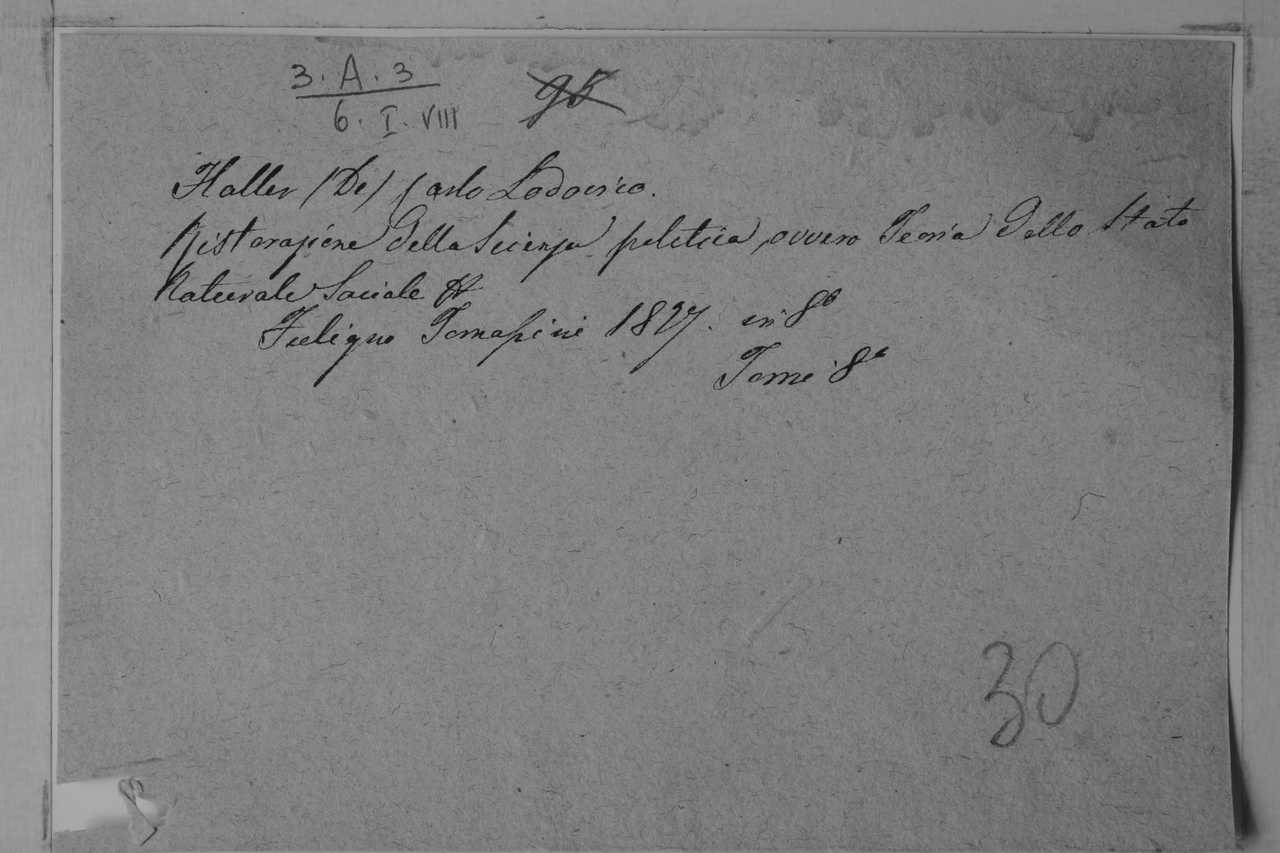 3. A. 3
6. I. VIII
95
Haller (De) Carlo Lodovico.
Ristorazione della Scienza politica, ovvero Teoria dello Stato
Naturale Sociale
Fuligno Tomassini 1827. in 8º
Tomi 8º
30